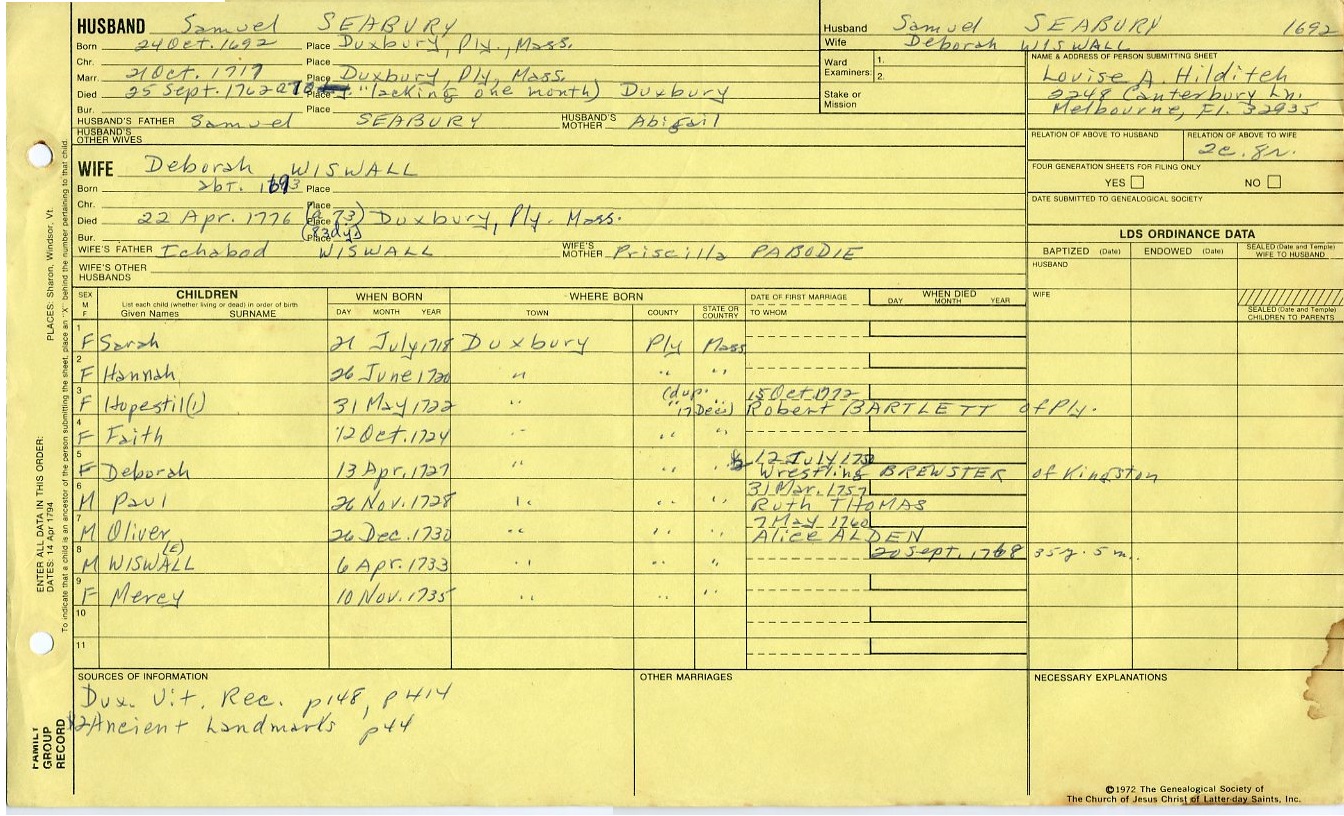 HUSBAND Samuel SEABURY
Born 24 Oct. 1692 Place Duxbury, Ply., Mass.
Chr. Place
Marr. 21 Oct. 1717 Place Duxbury, Ply, Mass.
Died 25 Sept. 1762 Place "lacking one month) Duxbury
Bur. Place
HUSBAND'S FATHER Samuel SEABURY HUSBAND'S MOTHER Abigail
HUSBAND'S OTHER WIVES
Husband Samuel SEABURY 1692
Wife Deborah WISWALL
Ward Examiners: 1.
2.
Stake or Mission
NAME & ADDRESS OF PERSON SUBMITTING SHEET
Louise A. Hilditch
2248 Canterbury Ln.
Melbourne, Fl. 32935
RELATION OF ABOVE TO HUSBAND RELATION OF ABOVE TO WIFE
2c. 8r.
FOUR GENERATION SHEETS FOR FILING ONLY
YES NO
DATE SUBMITTED TO GENEALOGICAL SOCIETY
WIFE Deborah WISWALL
Born abt. 1693 Place
Chr. Place
Died 22 Apr. 1776 (a 73) Place Duxbury, Ply. Mass.
Bur. (83dy) Place
WIFE'S FATHER Ichabod WISWALL WIFE'S MOTHER Priscilla PABODIE
WIFE'S OTHER HUSBANDS
LDS ORDINANCE DATA
BAPTIZED (Date) ENDOWED (Date) SEALED (Date and Temple) WIFE TO HUSBAND
HUSBAND
WIFE
SEALED (Date and Temple) CHILDREN TO PARENTS
SEX M F CHILDREN WHEN BORN WHERE BORN DATE OF FIRST MARRIAGE WHEN DIED
List each child (whether living or dead) in order of birth DAY MONTH YEAR
Given Names SURNAME DAY MONTH YEAR TOWN COUNTY STATE OR COUNTRY TO WHOM
1 F Sarah 21 July 1718 Duxbury Ply Mass
2 F Hannah 26 June 1720 " " "
3 F Hopestil(l) 31 May 1722 " " " (dup. 17 Dec) 15 Oct 1772
Robert BARTLETT of Ply.
4 F Faith 12 Oct. 1724 " " "
5 F Deborah 13 Apr. 1727 " " 12 July 1750
Wrestling BREWSTER of Kingston
6 M Paul 26 Nov. 1728 " " " 31 Mar. 1757
Ruth THOMAS
7 M Oliver 26 Dec. 1730 " " " 7 May 1760
Alice ALDEN
8 M WISWALL (E) 6 Apr. 1733 " " " 20 Sept. 1768 35y. 5 m.
9 F Mercy 10 Nov. 1735 " " "
10
11
SOURCES OF INFORMATION
Dux. Vit. Rec. p148, p414
Ancient Landmarks p44
OTHER MARRIAGES
NECESSARY EXPLANATIONS
©1972 The Genealogical Society of
The Church of Jesus Christ of Latter-day Saints, Inc.
FAMILY GROUP RECORD
ENTER ALL DATA IN THIS ORDER:
DATES: 14 Apr 1794
PLACES: Sharon, Windsor, Vt.
To indicate that a child is an ancestor of the person submitting the sheet, place an "X" behind the number pertaining to that child.